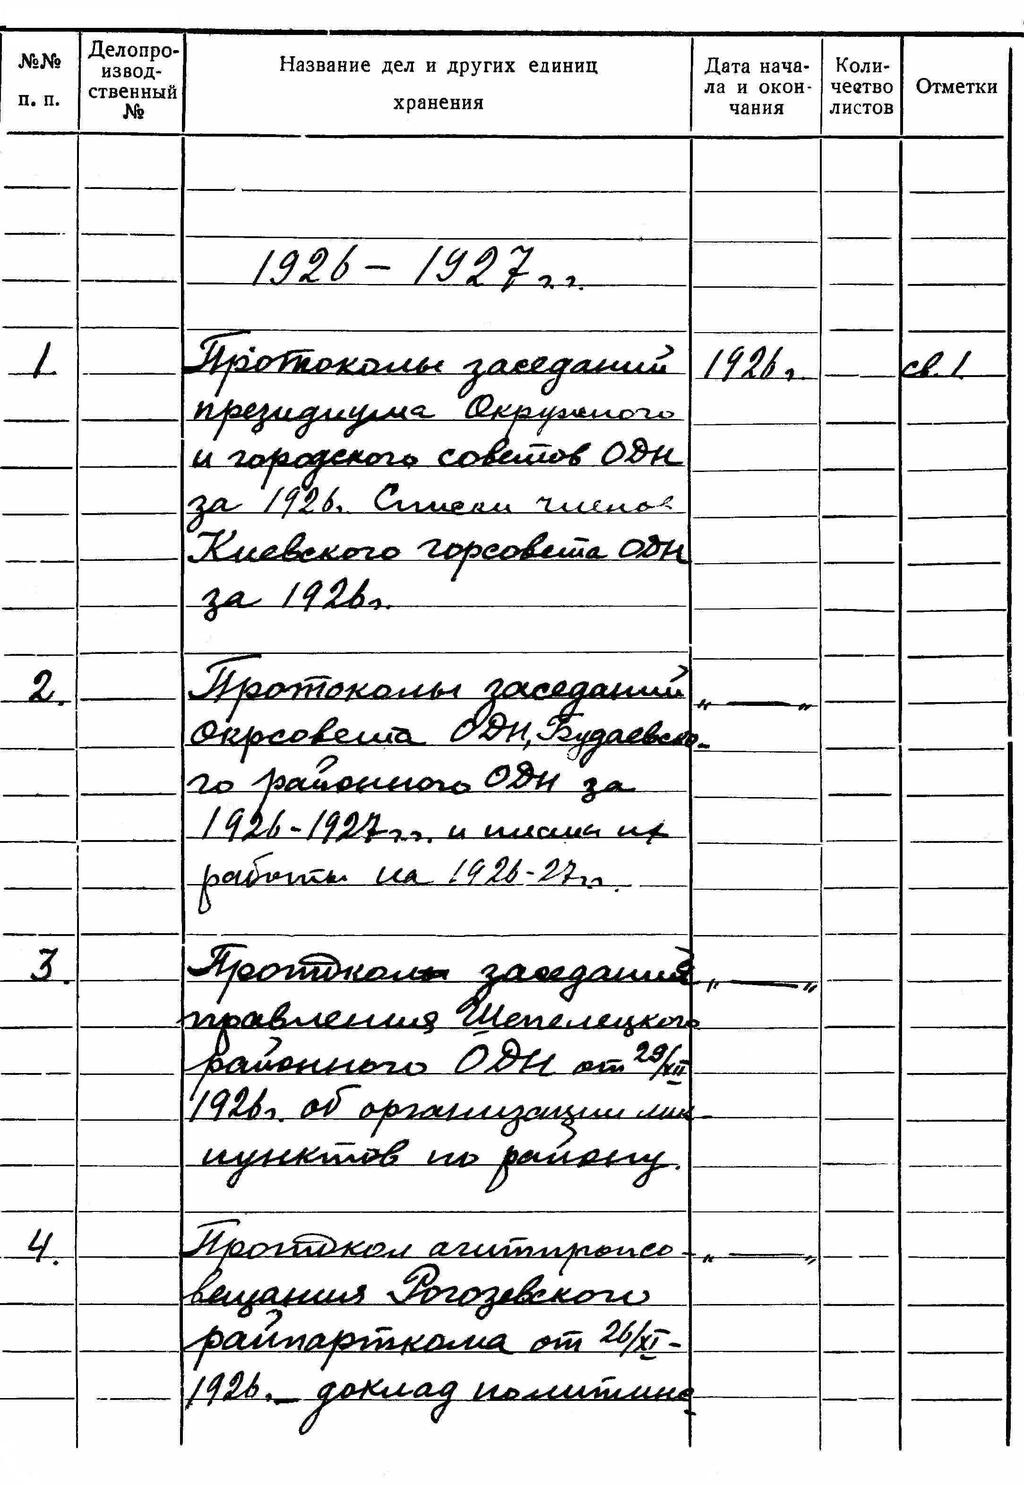 №№ п. п.
Делопроизвод-ственный №
Название дел и других единиц хранения
Дата нача-ла и окон-чания
Коли-чество листов
Отметки
1926 – 1927 г.г.
1. Протоколы заседаний 1926 г. св. 1.
президиума Окружного
и городского советов ОДН
за 1926г. Списки членов
Киевского горсовета ОДН
за 1926г.
2. Протоколы заседаний „ — „
Окрсовета ОДН, Будаевско-
го районного ОДН за
1926-1927 г.г. и планы их
работы на 1926-27 г.г.
3. Протокол заседания „ — „
правления Шепелецкого
районного ОДН от 29/XII
1926г. об организации лик-
пунктов по району.
4. Протокол агитпропсо- „ — „
вещания Рогозевского
райпарткома от 26/XI-
1926г. – доклад политинс